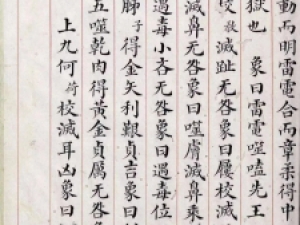 動而明雷電合而章柔得中
獄也　象曰雷電噬嗑先王
校教滅趾无咎象曰屨校滅
滅鼻无咎象曰噬膚滅鼻乘
遇毒小吝无咎象曰遇毒位
胏子得金矢利艱貞吉象曰
五噬乾肉得黃金貞厲无咎象
上九何荷校滅耳凶象曰